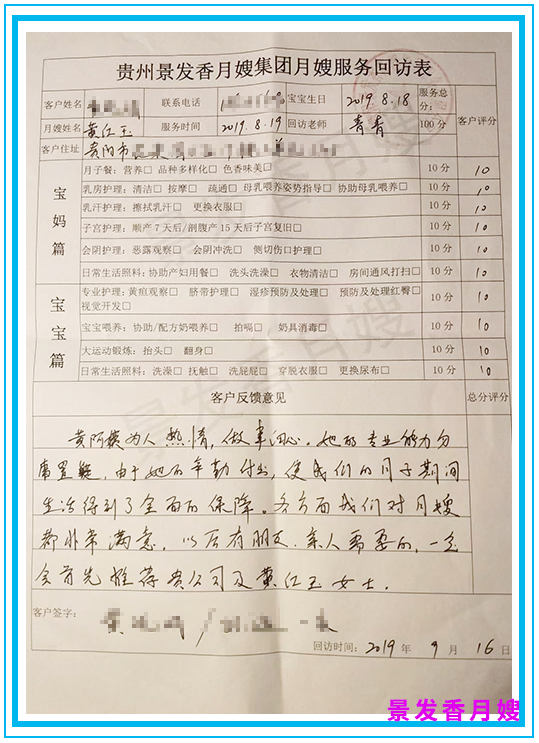 贵州景发香月嫂集团月嫂服务回访表
客户姓名 联系电话 宝宝生日 2019.8.18 服务总分: 客户评分
月嫂姓名 黄红玉 服务时间 2019.8.19 回访老师 青青 100分
客户住址 贵阳市
宝妈篇
月子餐:营养□ 品种多样化□ 色香味美□ 10分 10
乳房护理:清洁□ 按摩□ 疏通□ 母乳喂养姿势指导□ 协助母乳喂养□ 10分 10
乳汗护理:擦拭乳汗□ 更换衣服□ 10分 10
子宫护理:顺产7天后/剖腹产15天后子宫复旧□ 10分 10
会阴护理:恶露观察□ 会阴冲洗□ 侧切伤口护理□ 10分 10
日常生活照料:协助产妇用餐□ 洗头洗澡□ 衣物清洁□ 房间通风打扫□ 10分 10
宝宝篇
专业护理:黄疸观察□ 脐带护理□ 湿疹预防及处理□ 预防及处理红臀□
视觉开发□ 10分 10
宝宝喂养:协助/配方奶喂养□ 拍嗝□ 奶具消毒□ 10分 10
大运动锻炼:抬头□ 翻身□ 10分 10
日常生活照料:洗澡□ 抚触□ 洗屁屁□ 穿脱衣服□ 更换尿布□ 10分 10
客户反馈意见 总分评分
黄阿姨为人热情,做事细心,她的专业能力勿
庸置疑,由于她的辛勤付出,使我们的月子期间
生活得到了全面的保障。各方面我们对月嫂
都非常满意,以后有朋友、亲人需要的,一定
会首先推荐贵公司及黄红玉女士。
客户签字:
回访时间:2019年9月16日
景发香月嫂
景发香月嫂
景发香月嫂